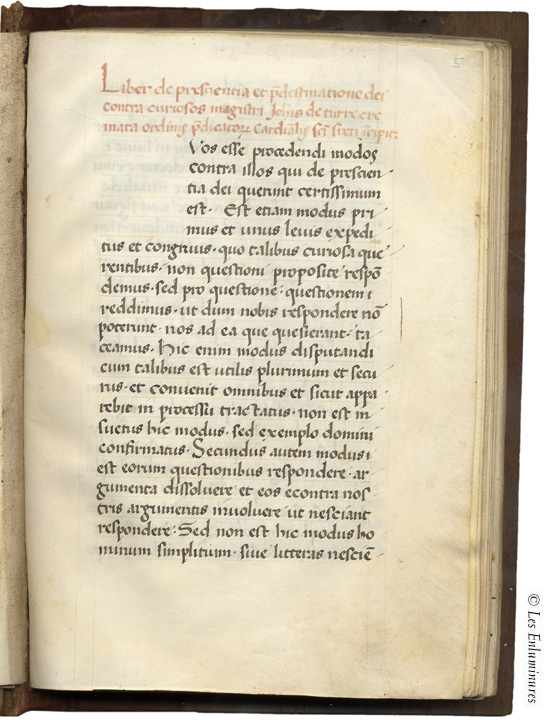 5
Liber de presciencia et p̄destinatione dei
contra curiosos magistri Joħis de turre cre
mata ordinis p̄dicatoꝝ Cardīalis sc̄ti sixti īcipit
Vos esse procedendi modos
contra illos qui de prescien-
tia dei querunt certissimum
est · Est etiam modus pri-
mus et unus levis expedi-
tus et congruus · quo talibus curiosa que-
rentibus · non questioni proposite respō-
demus · sed pro questione · questionem i
reddimus · ut dum nobis respondere nō
poterunt · nos ad ea que quesierant · ta-
ceamus · Hic enim modus disputandi
cum talibus est utilis plurimum et secu-
rus · et convenit omnibus et sicut appa-
rebit in processu tractatus · non est in-
suetus hic modus · sed exemplo domini
confirmatus · Secundus autem modus i
est eorum questionibus respondere · ar-
gumenta dissolvere et eos econtra nos-
tris argumentis involvere ut nesciant
respondere · Sed non est hic modus ho-
minum simplitium · sive litteras nesciē-
© Les Enluminures